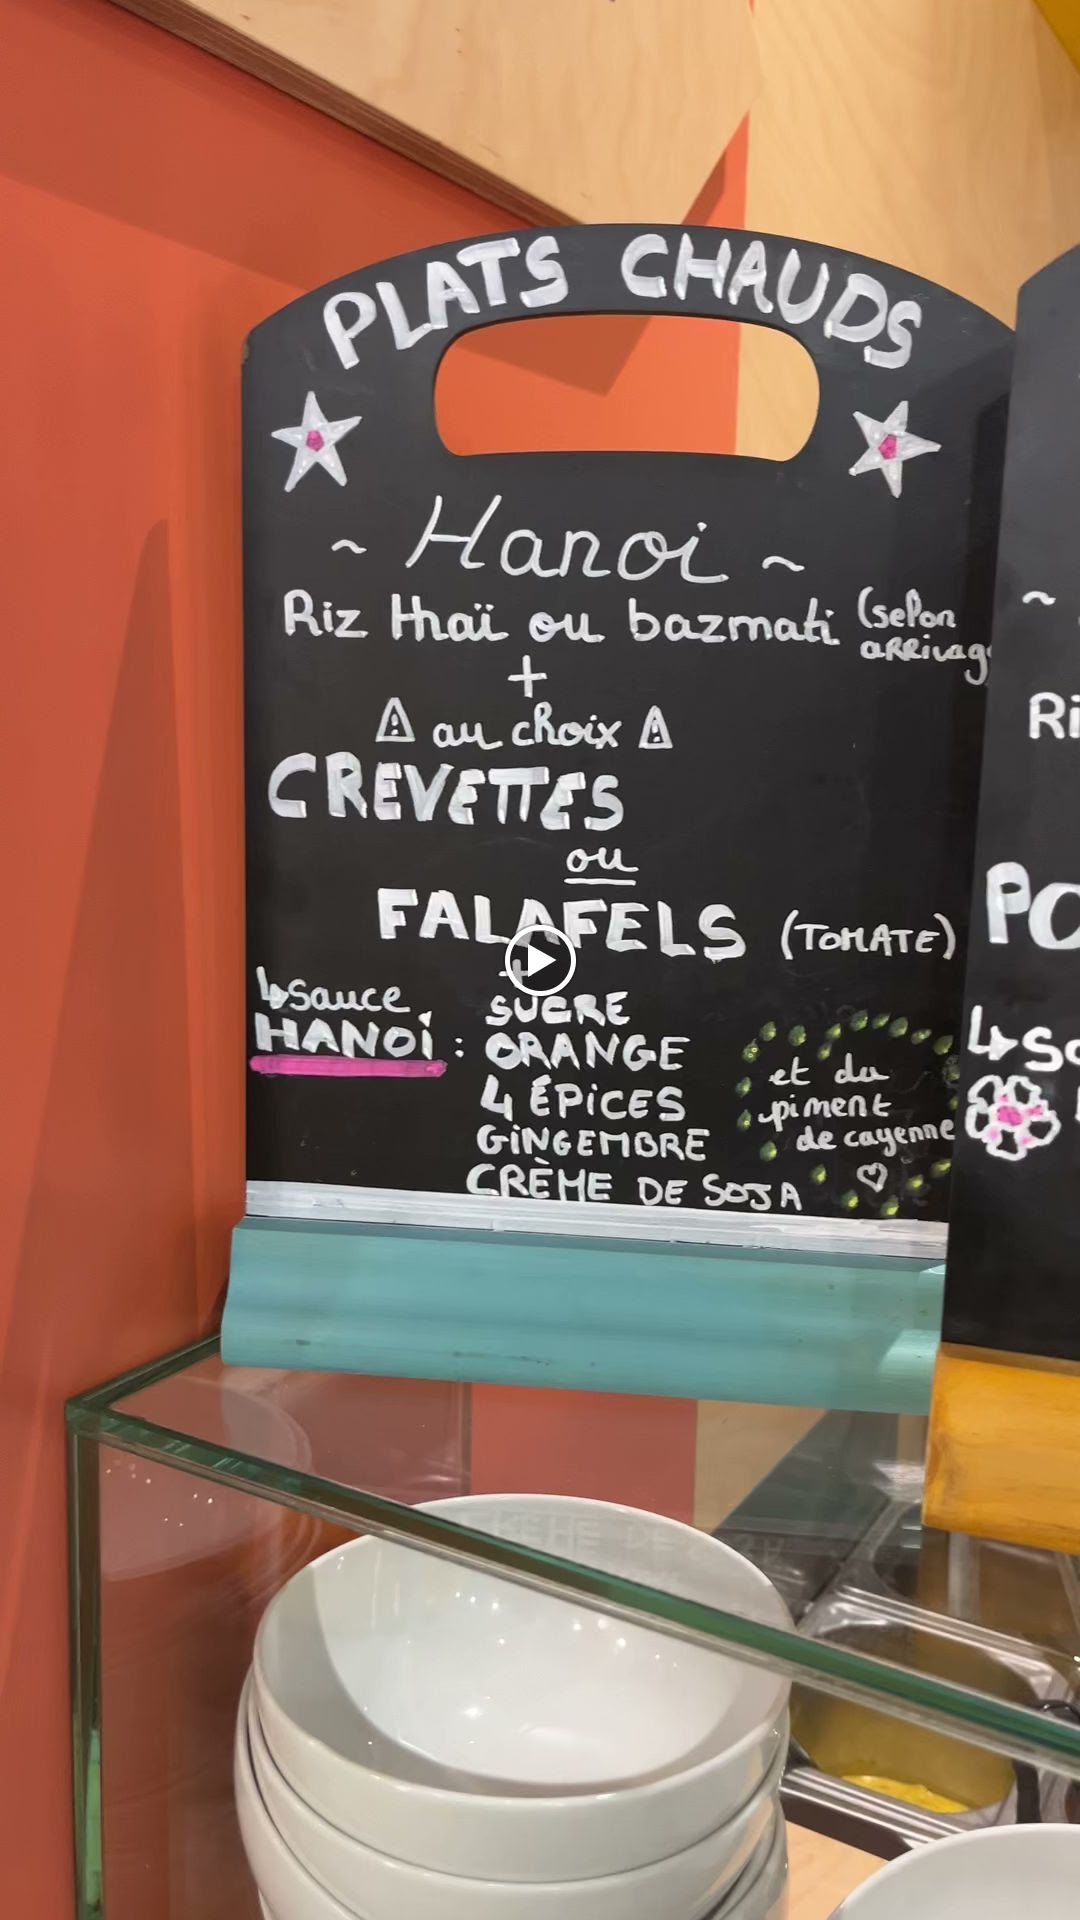 PLATS CHAUDS
~ Hanoi ~
Riz thaï ou bazmati (selon
arrivag
+
⚠ au choix ⚠
CREVETTES
ou
FALAFELS (TOMATE)
+
↳ Sauce
HANOÏ : SUCRE
ORANGE
4 ÉPICES
GINGEMBRE
CRÈME DE SOJA
et du
piment
de cayenne
♡
~
Ri
PO
↳ So